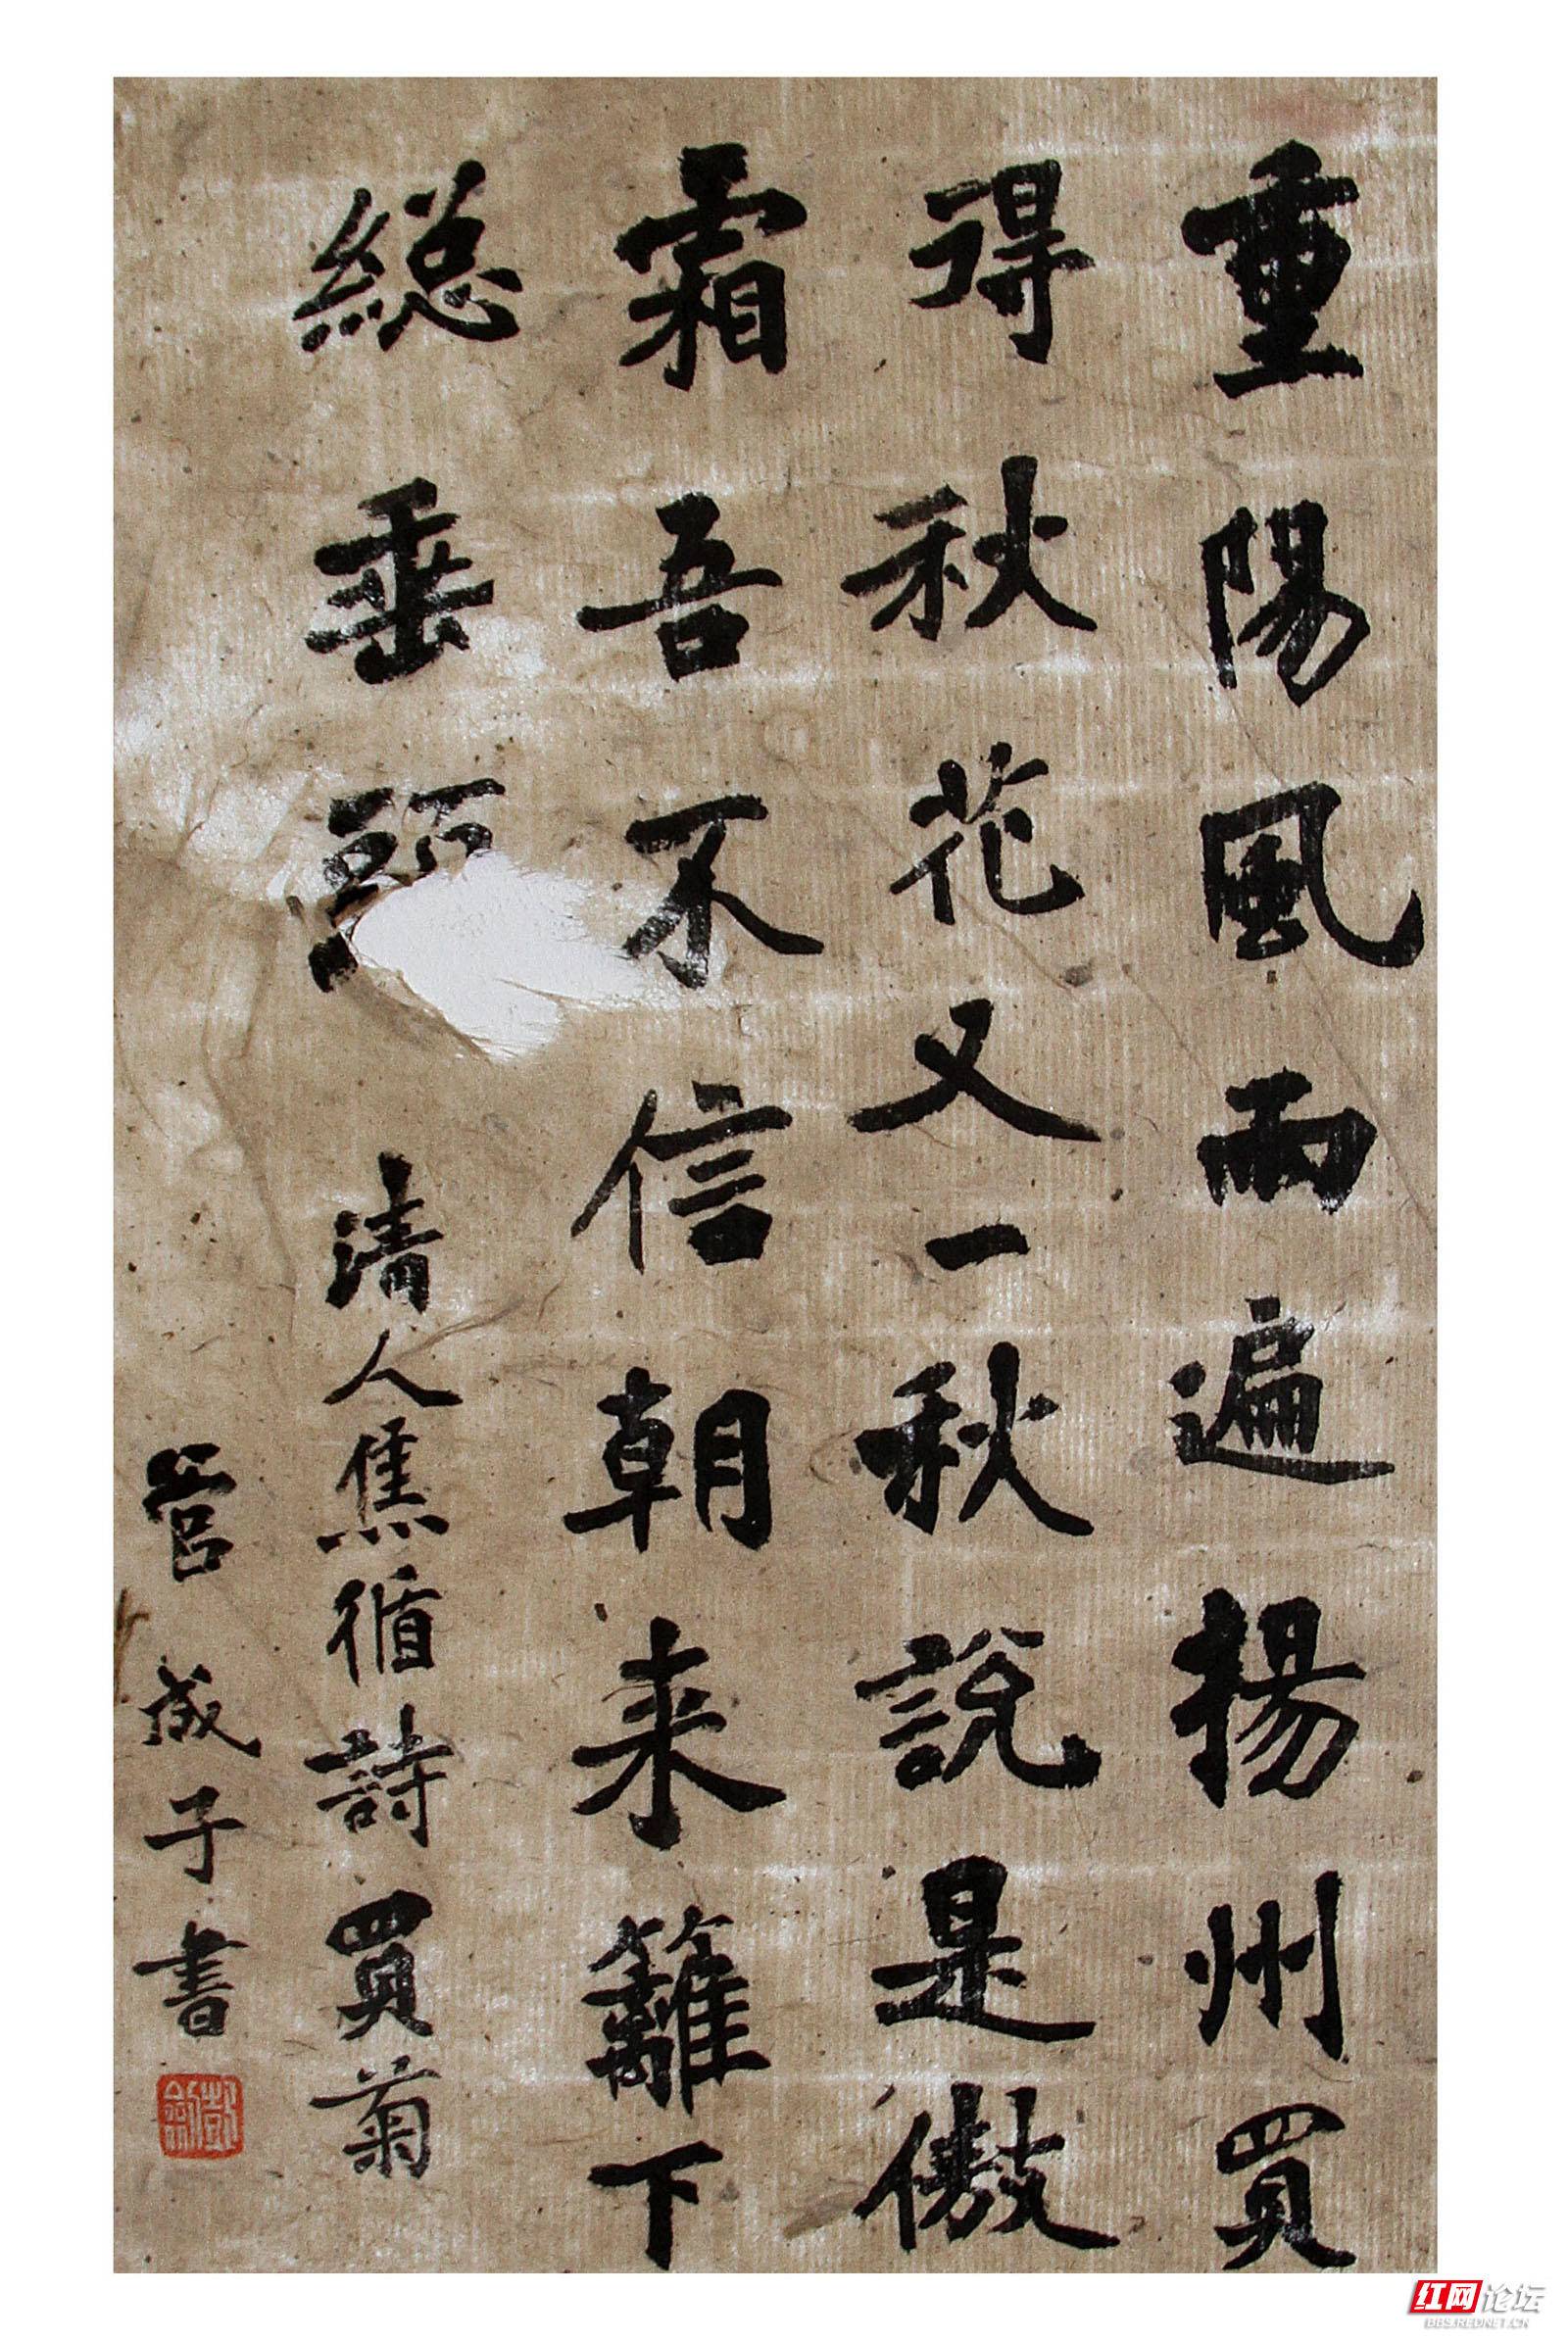 重陽風雨遍揚州買
得秋花又一秋說是傲
霜吾不信朝来籬下
総垂頭
清人焦循詩買菊
管成子書
红网论坛
BBS.REDNET.CN